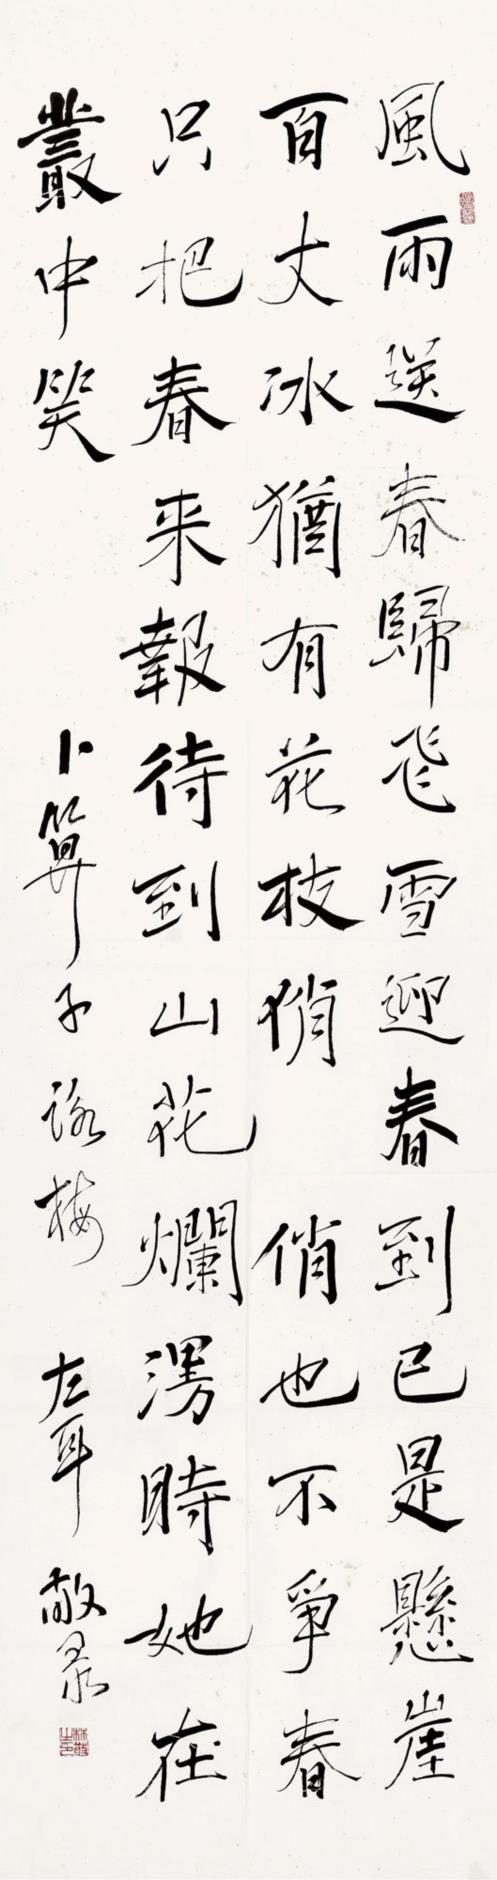 風雨送春歸飛雪迎春到已是懸崖
百丈冰猶有花枝俏 俏也不爭春
只把春来報待到山花爛漫時她在
叢中笑 卜算子詠梅 左耳敬录